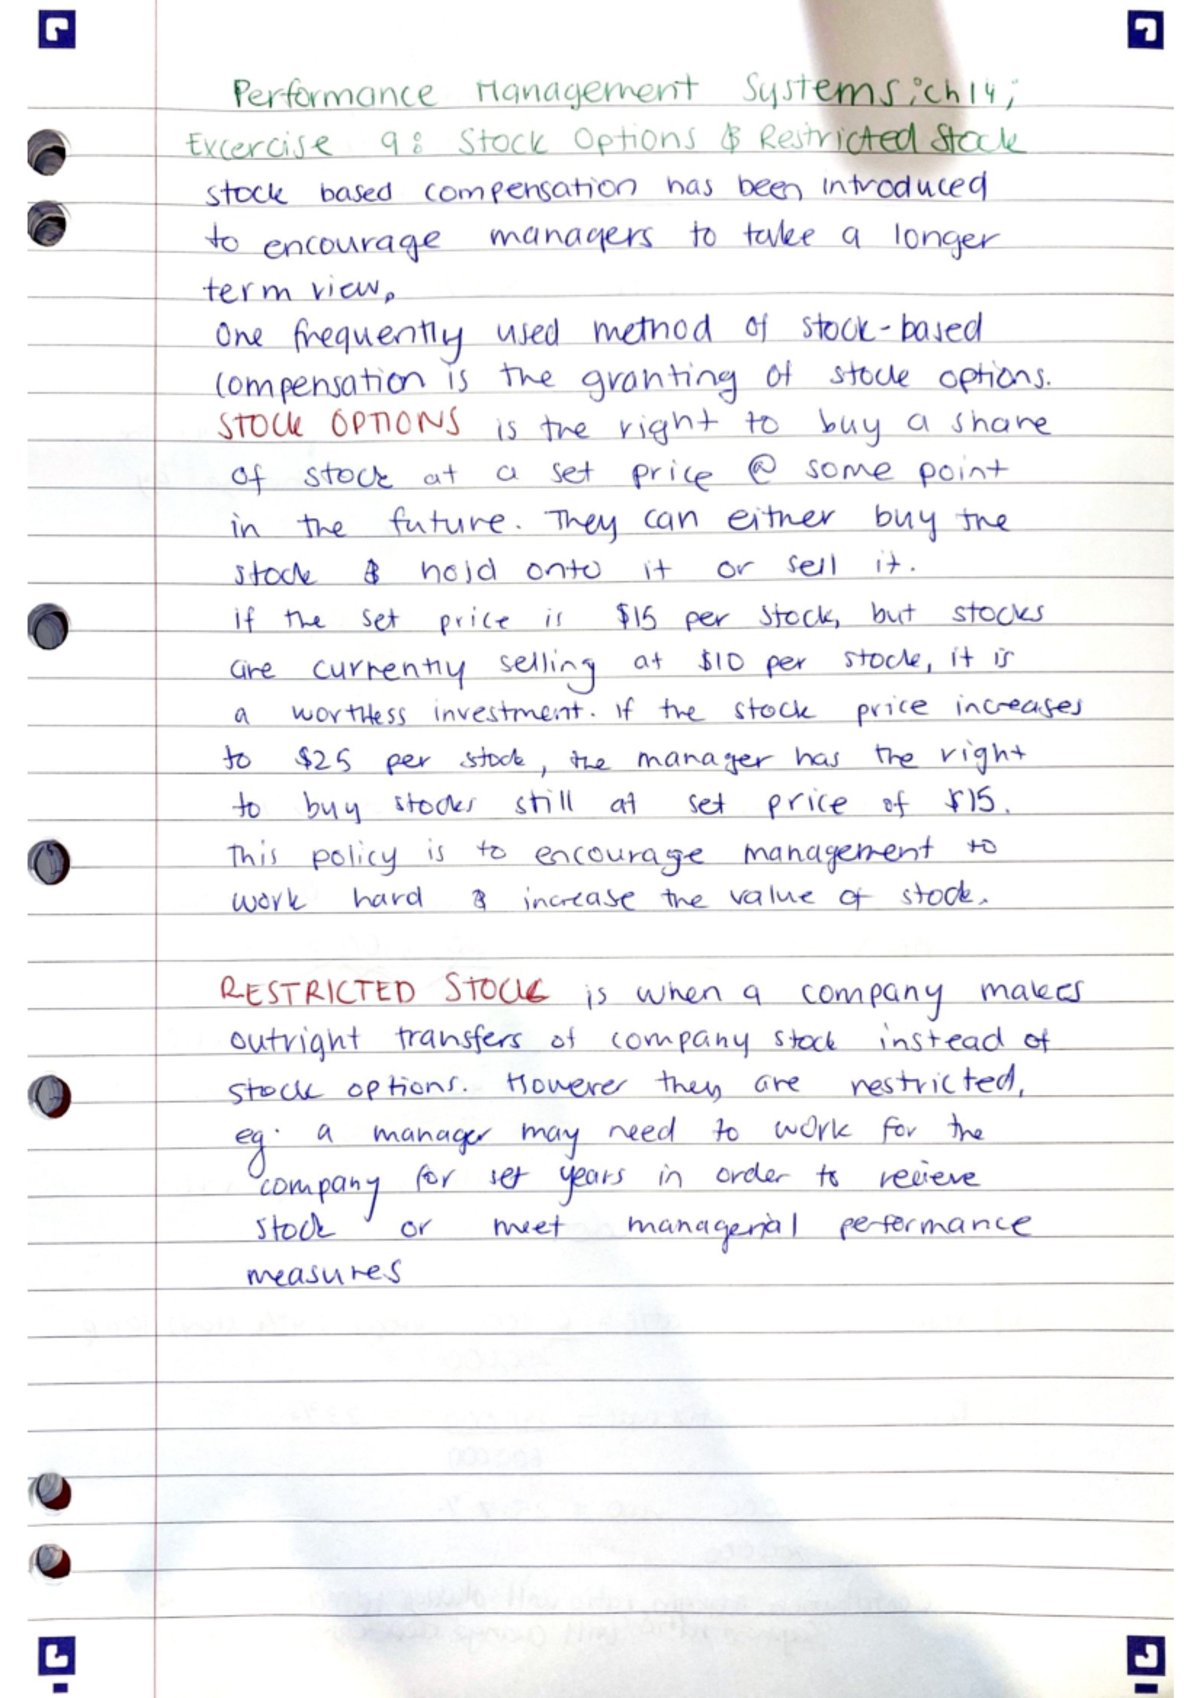 Performance Management Systems: ch14;
Excercise 9: Stock Options & Restricted Stock
stock based compensation has been introduced
to encourage managers to take a longer
term view.
One frequently used method of stock-based
compensation is the granting of stock options.
STOCK OPTIONS is the right to buy a share
of stock at a set price @ some point
in the future. They can either buy the
stock & hold onto it or sell it.
if the set price is $15 per stock, but stocks
are currently selling at $10 per stock, it is
a worthless investment. If the stock price increases
to $25 per stock, the manager has the right
to buy stocks still at set price of $15.
This policy is to encourage management to
work hard & increase the value of stock.
RESTRICTED STOCK is when a company makes
outright transfers of company stock instead of
stock options. However they are restricted,
eg. a manager may need to work for the
company for set years in order to recieve
stock or meet managerial performance
measures